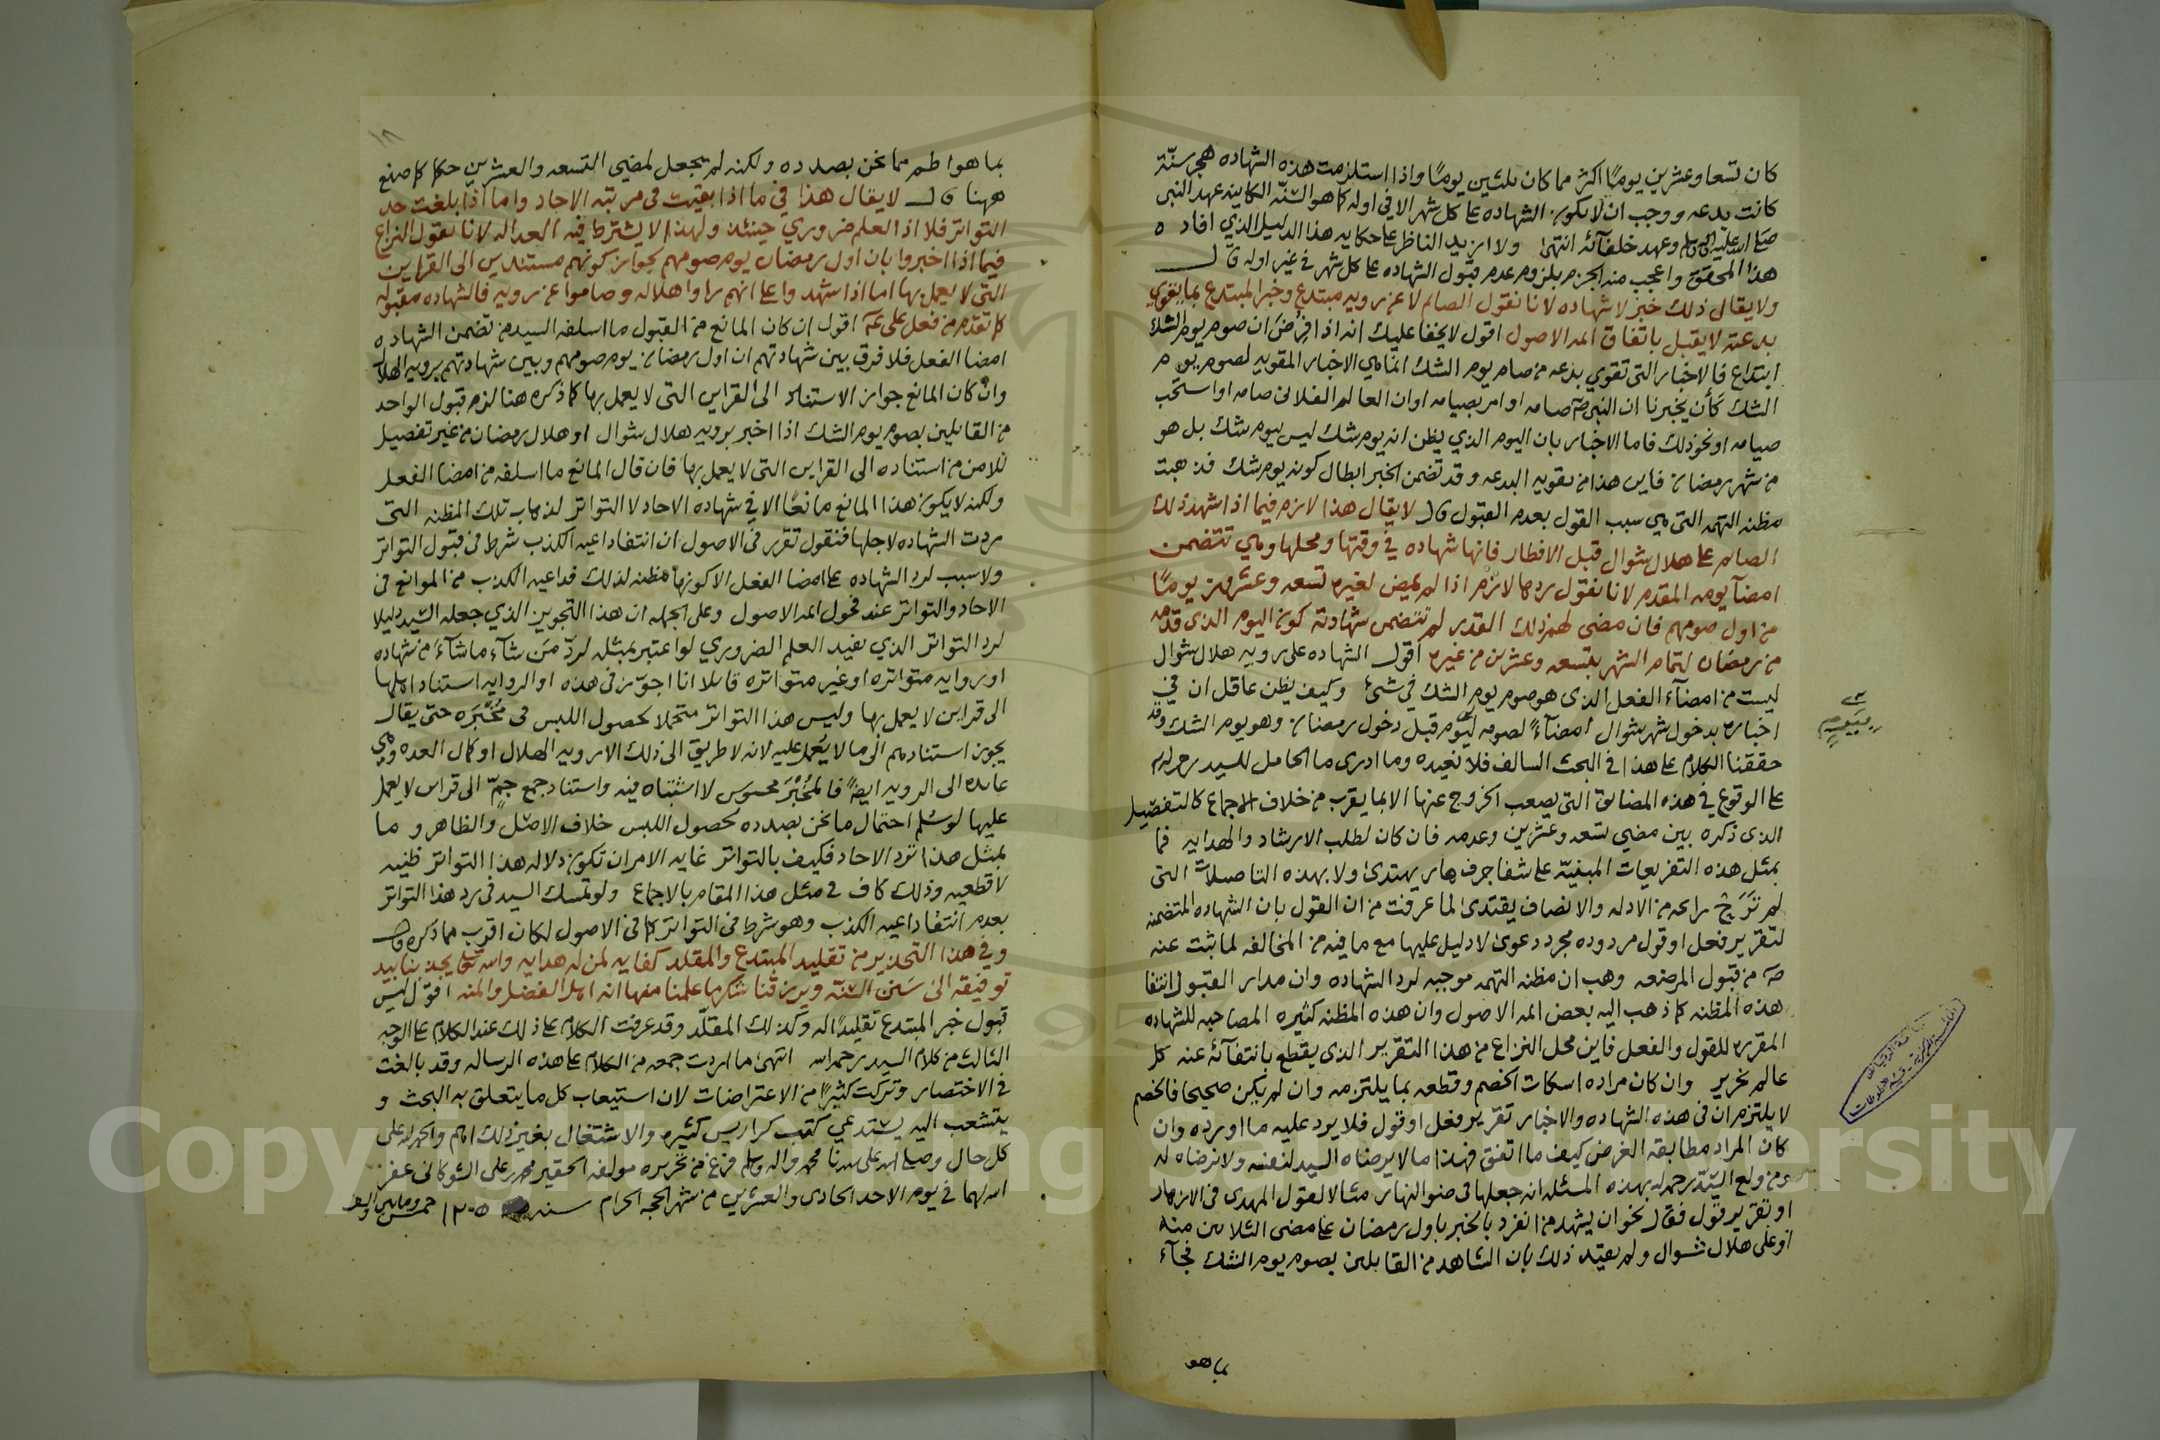 كان تسعا وعشرين يومًا اكثر مما كان ثلثين يومًا واذا استلزمت هذه الشهاده هجر سنّة
كانت بدعه ووجب ان لا يكون الشهاده على كل شهر الا في اوله كما هو السنّه الكاينه عهد النبي
صلى الله عليه واله وسلم وعهد خلفآئه انتهى ولا ازيد الناظر على حكايه هذا الدليل الذي افاده
هذا المحقق واعجب منه الجزم بلزوم عدم قبول الشهاده على كل شهر في غير اوله قال
ولا يقال ذلك خبر لا شهاده لانا نقول الصائم لا عن رويه مبتدع وخبر المبتدع بما يقوي
بدعته لا يقبل باتفاق ائمه الاصول اقول لا يخفا عليك انه اذا فُرضَ ان صوم يوم الشك
ابتداع فالاخبار التى تقوي بدعه من صام يوم الشك انما هي الاخبار المقويه لصوم يوم
الشك كأن يخبرنا ان النبي صامه او امر بصيامه او ان العالم الفلانى صامه او استحب
صيامه او نحو ذلك فاما الاخبار بان اليوم الذي يظن انه يوم شك ليس بيوم شك بل هو
من شهر رمضان فاين هذا من تقويه البدعه وقد تضمن الخبر ابطال كونه يوم شك فذهبت
مظنه التهمه التى هي سبب القول بعدم القبول قال لا يقال هذا لازم فيما اذا شهد ذلك
الصائم على هلال شوال قبل الافطار فانها شهاده في وقتها ومحلها وهي تتضمن
امضآ يومه المقدم لانا نقول ردها لازم اذا لم يمض لغيره تسعه وعشرون يومًا
من اول صومهم فان مضى لهم ذلك القدر لم تتضمن شهادته كون اليوم الذى قدمه
من رمضان لتمام الشهر بتسعه وعشرين من غيره اقول الشهاده على رويه هلال شوال
ليست من امضآء الفعل الذى هو صوم يوم الشك في شئ وكيف يظن عاقل ان في
اخباره بدخول شهر شوال امضآءً لصومه ليوم قبل دخول رمضان وهو يوم الشك وقد
حققنا الكلام على هذا في البحث السالف فلا نعيده وما ادرى ما الحامل للسيد رحمه الله
على الوقوع في هذه المضايق التى يصعب الخروج عنها الا بما يقرب من خلاف الاجماع كالتفصيل
الذى ذكره بين مضي تسعه وعشرين وعدمه فان كان لطلب الارشاد والهدايه فما
بمثل هذه التفريعات المبنيّه على شفا جرف هار يهتدى ولا بهذه التاصيلات التى
لم تَرَحْ رايحه من الادله والانصاف يقتدى لما عرفت من ان القول بان الشهاده المتضمنه
لتقرير فعل او قول مردوده مجرد دعوى لا دليل عليها مع ما فيه من المخالفه لما ثبت عنه
من قبول المرضعه وهب ان مظنه التهمه موجبه لرد الشهاده وان مدار القبول انتفا
هذه المظنه كما ذهب اليه بعض ائمه الاصول وان هذه المظنه كثيره المصاحبه للشهاده
المقرره للقول والفعل فاين محل النزاع من هذا التقرير الذى يقطع بانتفآئه عنه كل
عالم نحرير وان كان مراده اسكات الخصم وقطعه بما يلتزمه وان لم يكن صحيحا فالخصم
لا يلتزم ان فى هذه الشهاده والاخبار تقرير فعل او قول فلا يرد عليه ما اورده وان
كان المراد مطابقه الغرض كيف ما اتفق فهذا ما لا يرضاه السيد لنفسه ولا نرضاه له
ومن ولع السيّد رحمه الله بهذه المسئله انه جعلها فى ضوء النهار مثالا لقول المهدى فى الازهار
او تقرير قول فقال نحو ان يشهد من انفرد بالخبر باول رمضان على مضى الثلاثين منه
او على هلال شوال ولم يقيد ذلك بان الشاهد من القايلين بصوم يوم الشك فجآء
بما هو
بما هو اطم مما نحن بصدده ولكنه لم يجعل لمضي التسعه والعشرين حكما كما صنع
ههنا قال لا يقال هذا في ما اذا بقيت فى مرتبه الاحاد واما اذا بلغت حد
التواتر فلا اذ العلم ضروري حينئذ ولهذا لا يشترط فيه العداله لانا نقول النزاع
فيما اذا اخبروا بان اول رمضان يوم صومهم لجواز كونهم مستندين الى القراين
التى لا يعمل بها اما اذا شهدوا على انهم راوا هلاله وصاموا عن رويه فالشهاده مقبوله
كما تقدم من فعل على اقول ان كان المانع من القبول ما اسلفه السيد من تضمن الشهاده
امضا الفعل فلا فرق بين شهادتهم ان اول رمضان يوم صومهم وبين شهادتهم برويه الهلال
وان كان المانع جواز الاستناد الى القراين التى لا يعمل بها كما ذكره هنا لزم قبول الواحد
من القايلين بصوم يوم الشك اذا اخبر برويه هلال شوال او هلال رمضان من غير تفصيل
للامن من استناده الى القراين التى لا يعمل بها فان قال المانع ما اسلفه من امضا الفعل
ولكنه لا يكون هذا المانع مانعًا الا في شهاده الاحاد لا التواتر لذهاب تلك المظنه التى
ردت الشهاده لاجلها فنقول تقرر فى الاصول ان انتفا داعيه الكذب شرط فى قبول التواتر
ولا سبب لرد الشهاده على امضا الفعل الا كونها مظنه لذلك فداعيه الكذب من الموانع فى
الاحاد والتواتر عند فحول ائمه الاصول وعلى الجمله ان هذا التجويز الذي جعله السيد دليلا
لرد التواتر الذي يفيد العلم الضروري لو اعتبر بمثله لردّ مَن شآء ما شآء من شهاده
او روايه متواتره او غير متواتره قايلا انا اجوّز فى هذه او الروايه استناد اهلها
الى قراين لا يعمل بها وليس هذا التواتر متحملا لحصول اللبس فى مُخْبَرِه حتى يقال
يجوز استنادهم الى ما لا يُعمل عليه لانه لا طريق الى ذلك الا رويه الهلال او كمال العده وهي
عايده الى الرويه ايضًا فالمُخْبَر محسوس لا اشتباه فيه واستناد جمع جمّ الى قراين لا يعمل
عليها لو سُلم احتمال ما نحن بصدده لحصول اللبس خلاف الاصل والظاهر وما
بمثل هذا تُرد الاحاد فكيف بالتواتر غايه الامر ان تكون دلاله هذا التواتر ظنيه
لا قطعيه وذلك كاف في مثل هذا المقام بالاجماع ولو تمسك السيد فى رد هذا التواتر
بعدم انتفا داعيه الكذب وهو شرط فى التواتر كما فى الاصول لكان اقرب مما ذكره قال
وفى هذا التحذير من تقليد المبتدع والمقلد كفايه لمن له هدايه والله تعالى يجذبنا بيد
توفيقه الى سَنن السُنّه ويرزقنا شكر ما علمنا منها انه اهل الفضل والمنه اقول ليس
قبول خبر المبتدع تقليدًا له وكذلك المقلّد وقد عرفت الكلام على ذلك عند الكلام على الوجه
الثالث من كلام السيد رحمه الله انتهى ما اردت جمعه من الكلام على هذه الرساله وقد بالغت
في الاختصار وتركت كثيرًا من الاعتراضات لان استيعاب كل ما يتعلق به البحث و
يتشعب اليه يستدعي كتب كراريس كثيره والاشتغال بغير ذلك اهم والحمد لله على
كل حال وصلى الله على سيدنا محمد واله وسلم فرغ من تحريره مولفه الحقير محمد بن على الشوكانى غفر
الله لهما في يوم الاحد الحادى والعشرين من شهر الحجه الحرام سنه ١٢٠٥ خمس ومايتين والف
Copyright © King Saud University